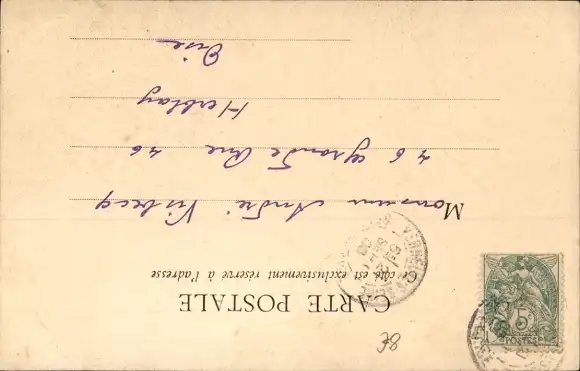 CARTE POSTALE
Ce côté est exclusivement réservé à l'adresse
Monsieur André Visbecq
46 Grande Rue 46
Herblay
Oise
5c
POSTES